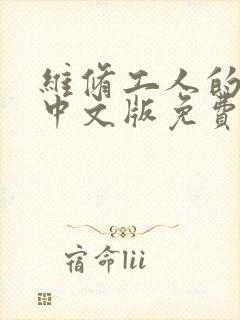 維脩工人的
中文版免費
宿命lii